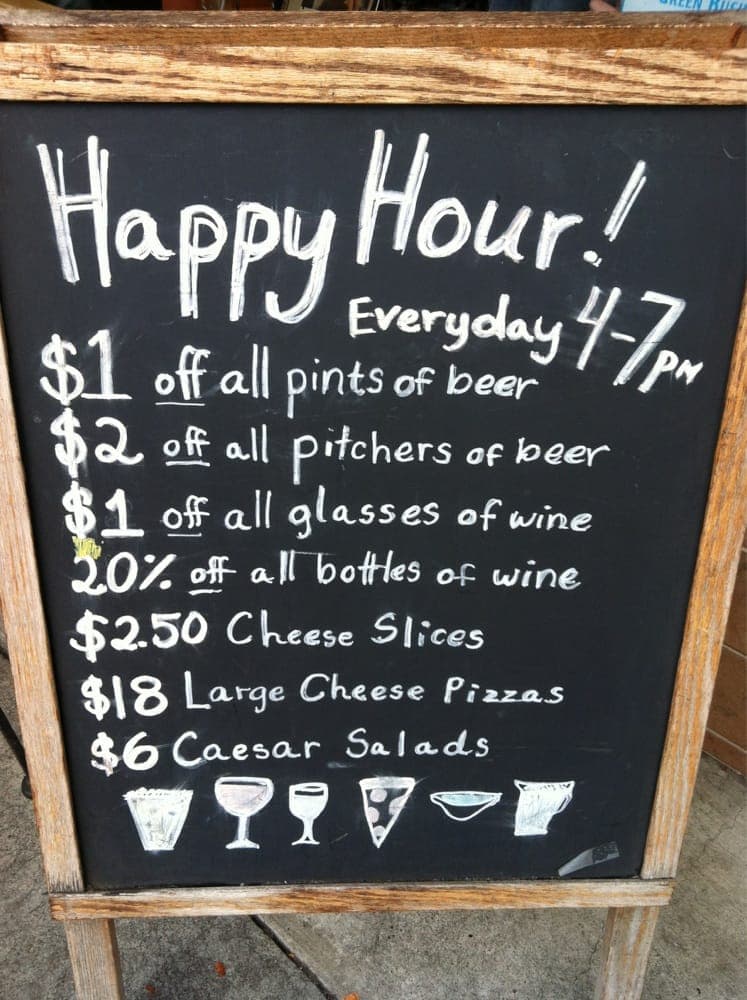 Happy Hour!
Everyday 4-7PM
$1 off all pints of beer
$2 off all pitchers of beer
$1 off all glasses of wine
20% off all bottles of wine
$2.50 Cheese Slices
$18 Large Cheese Pizzas
$6 Caesar Salads